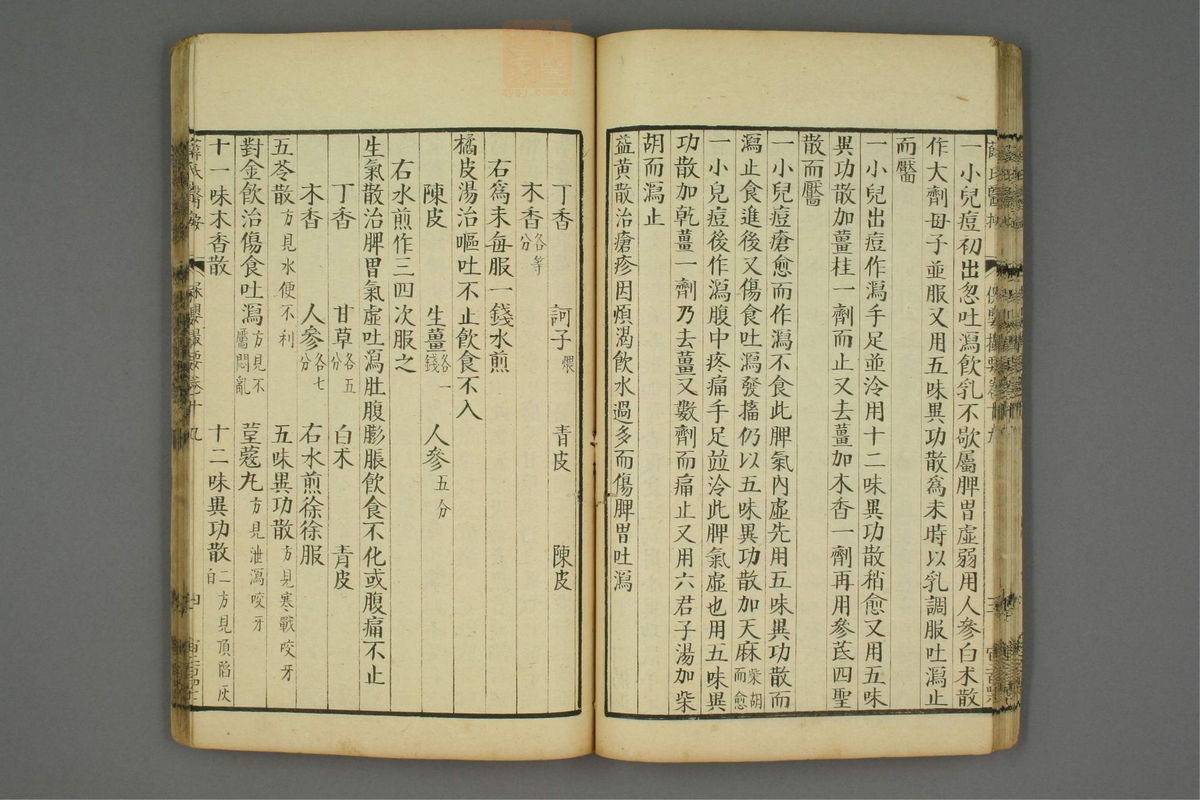 一小兒痘初出忽吐瀉飲乳不歇屬脾胃虛弱用人參白朮散
作大劑母子並服又用五味異功散為末時以乳調服吐瀉止
而靨
一小兒出痘作瀉手足並冷用十二味異功散稍愈又用五味
異功散加薑桂一劑而止又去薑加木香一劑再用參芪四聖
散而靨
一小兒痘瘡愈而作瀉不食此脾氣內虛先用五味異功散而
瀉止食進後又傷食吐瀉發搐仍以五味異功散加天麻柴胡而愈
一小兒痘後作瀉腹中疼痛手足並冷此脾氣虛也用五味異
功散加乾薑一劑乃去薑又數劑而痛止又用六君子湯加柴
胡而瀉止
益黃散治瘡疹因煩渴飲水過多而傷脾胃吐瀉
丁香 訶子煨 青皮 陳皮
木香各等分
右為末每服一錢水煎
橘皮湯治嘔吐不止飲食不入
陳皮 生薑各一錢 人參五分
右水煎作三四次服之
生氣散治脾胃氣虛吐瀉肚腹膨脹飲食不化或腹痛不止
丁香 甘草各五分 白朮 青皮
木香 人參各七分 右水煎徐徐服
五苓散方見水便不利 五味異功散方見寒戰咬牙
對金飲治傷食吐瀉方見不靨悶亂 荳蔻丸方見泄瀉咬牙
十一味木香散 十二味異功散二方見頂陷灰白
薛氏醫按 保嬰撮要卷十九 四